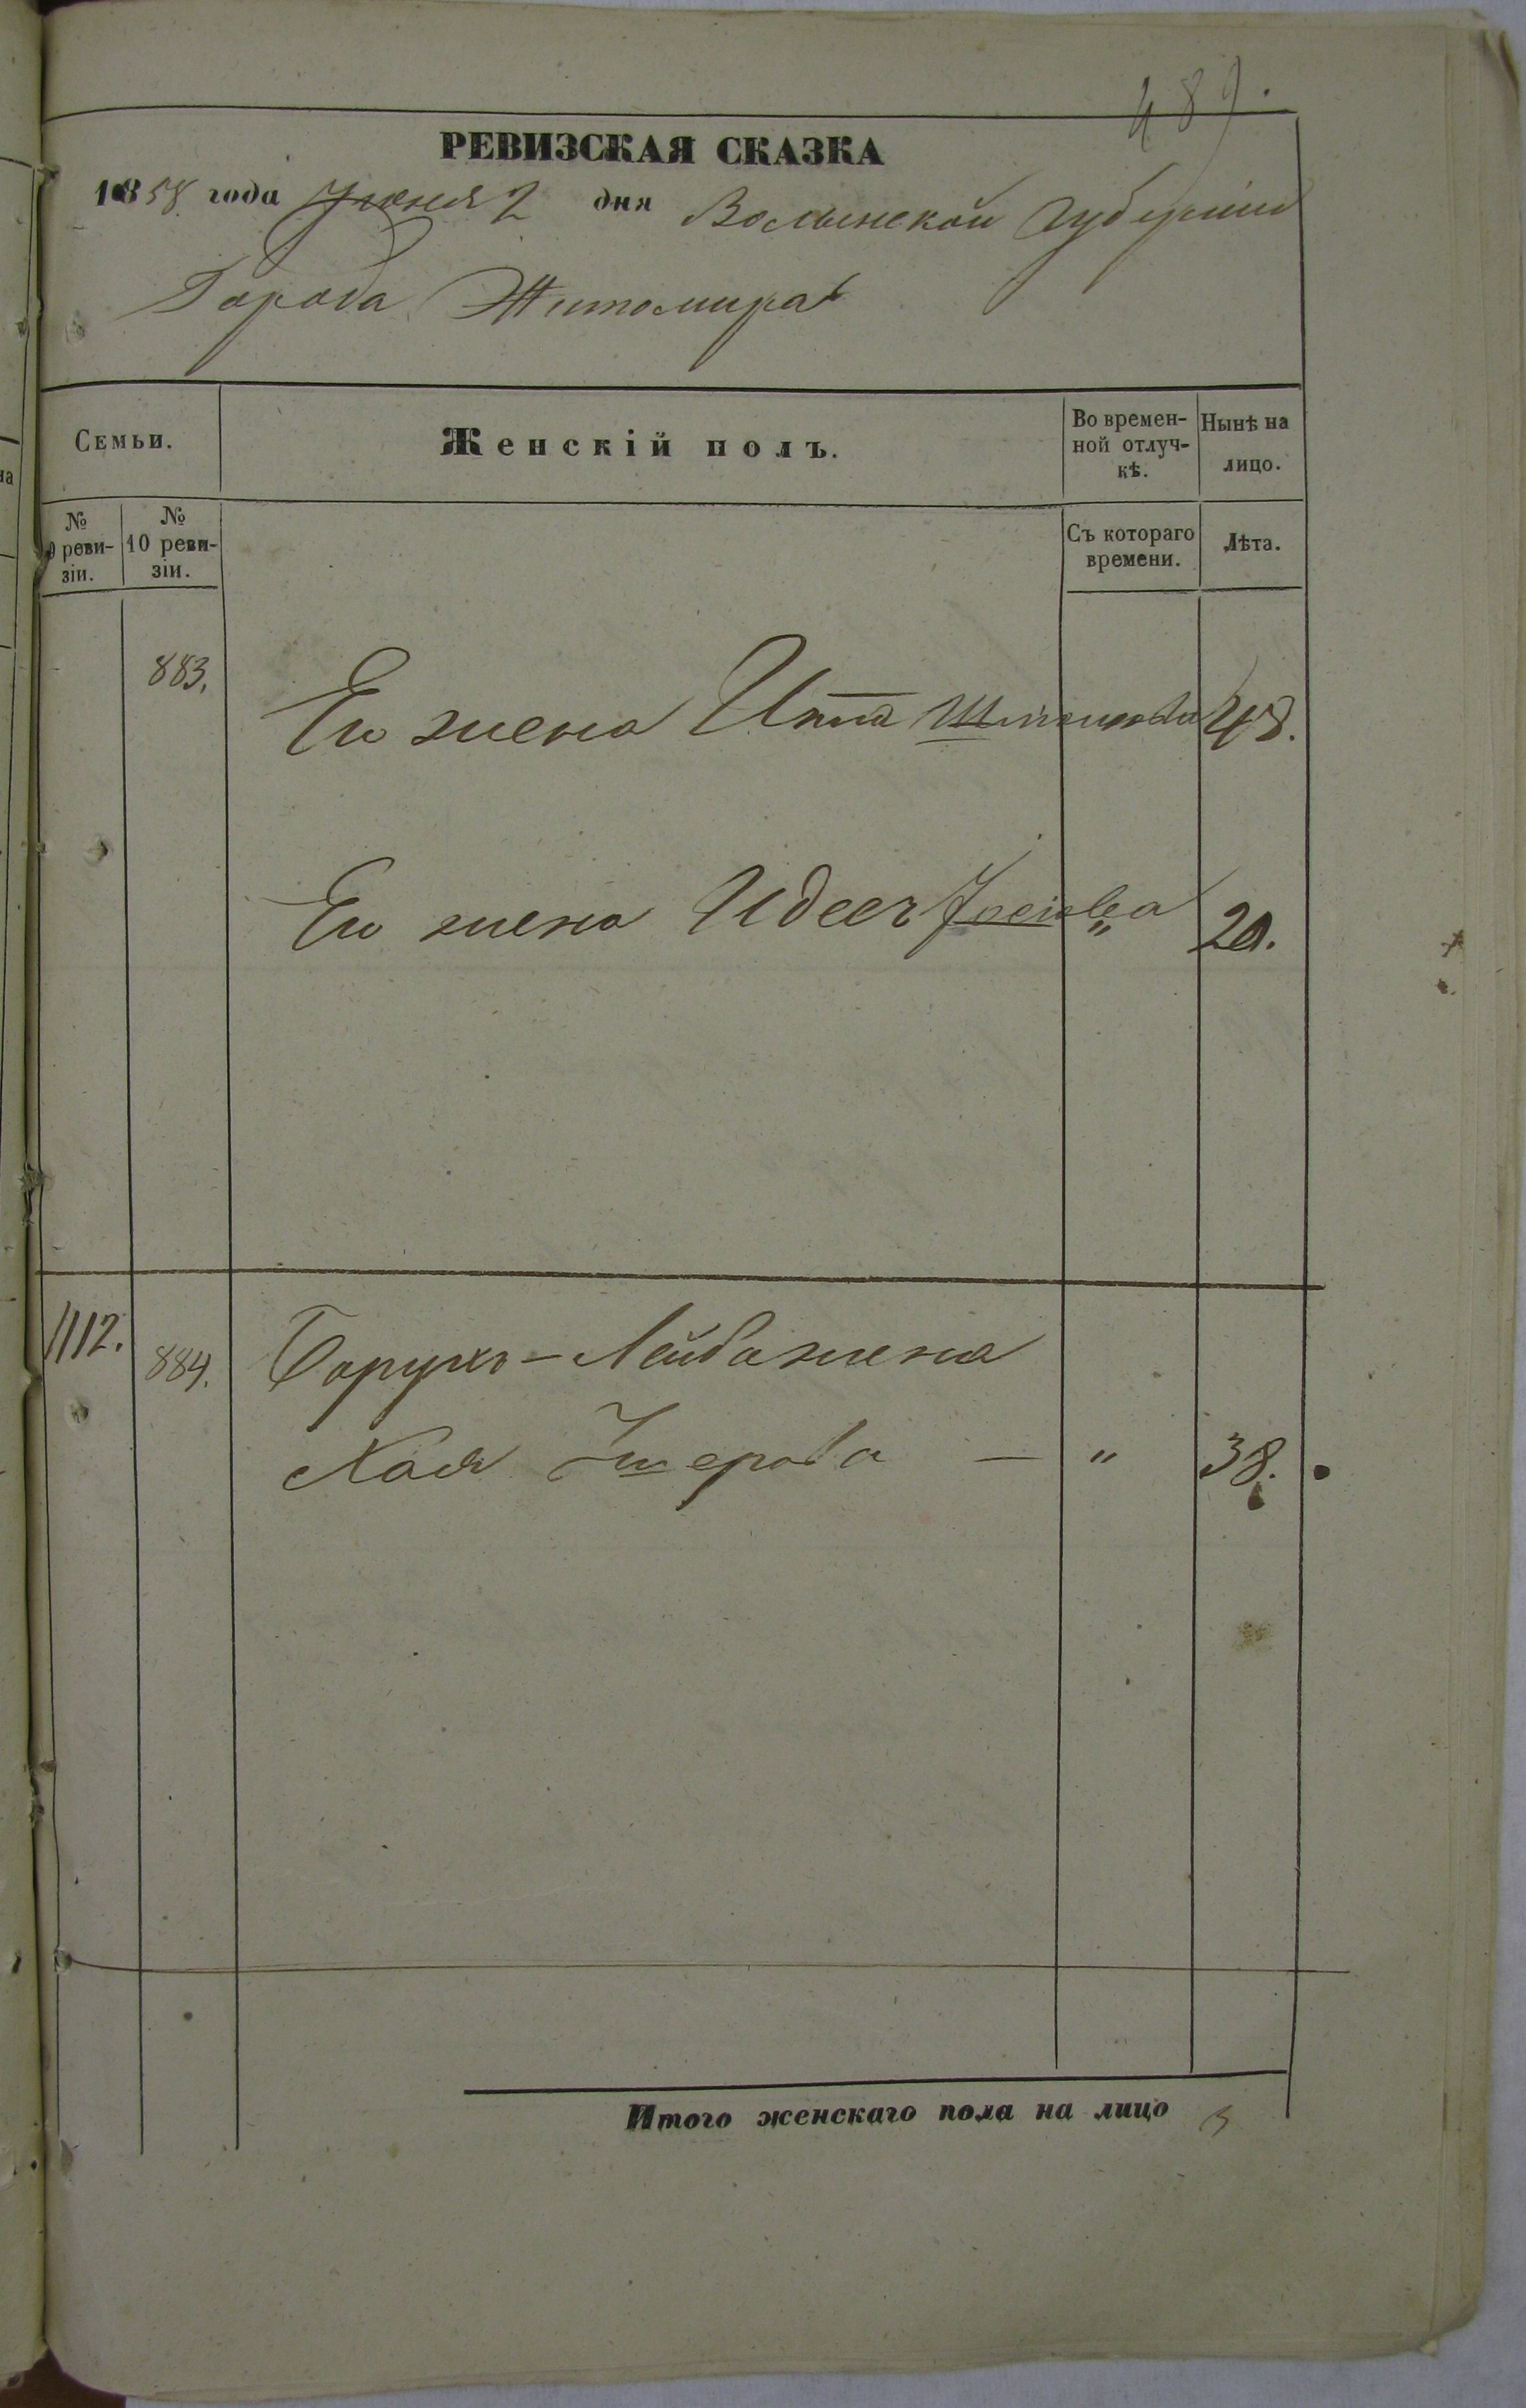 489.
РЕВИЗСКАЯ СКАЗКА
1858 года Іюня 2 дня Волынской Губерніи
Города Житомира
Семьи.
Женскій полъ.
Во времен-
ной отлуч-
кѣ.
Нынѣ на
лицо.
№
9 реви-
зіи.
№
10 реви-
зіи.
Съ котораго
времени.
Лѣта.
883.
Его жена 48.
Его жена " 20.
1112.
884.
Борухъ-Лейба жена
Хая — " 38.
Итого женскаго пола на лицо 3